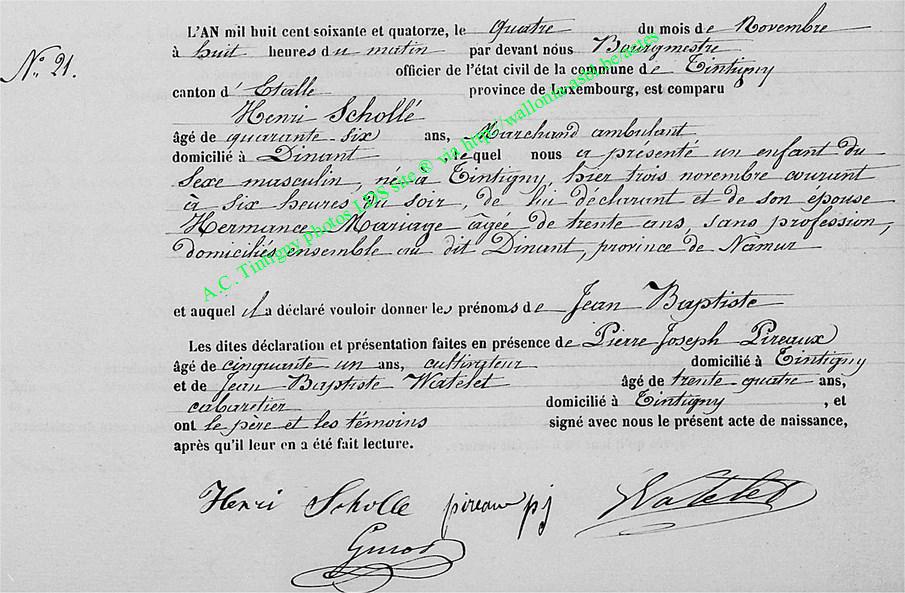 L'AN mil huit cent soixante et quatorze, le quatre du mois de Novembre
à huit heures du matin par devant nous Bourgmestre
N° 21.
officier de l'état civil de la commune de Tintigny
canton d'Etalle province de Luxembourg, est comparu
Henri Schollé
âgé de quarante-six ans, Marchand ambulant
domicilié à Dinant lequel nous a présenté un enfant du
sexe masculin, né à Tintigny, hier trois novembre courant
à six heures du soir, de lui déclarant et de son épouse
Hermance Mariage âgée de trente ans, sans profession,
domiciliés ensemble au dit Dinant, province de Namur
et auquel il a déclaré vouloir donner les prénoms de Jean Baptiste
Les dites déclaration et présentation faites en présence de Pierre Joseph Pireaux
âgé de cinquante un ans, cultivateur domicilié à Tintigny
et de Jean Baptiste Watelet âgé de trente-quatre ans,
cabaretier domicilié à Tintigny, et
ont le père et les témoins signé avec nous le présent acte de naissance,
après qu'il leur en a été fait lecture.
Henri Scholle pireaux pj Watelet
A.C. Tintigny photos LDS site © via http://wallonia.asbl.be/actes